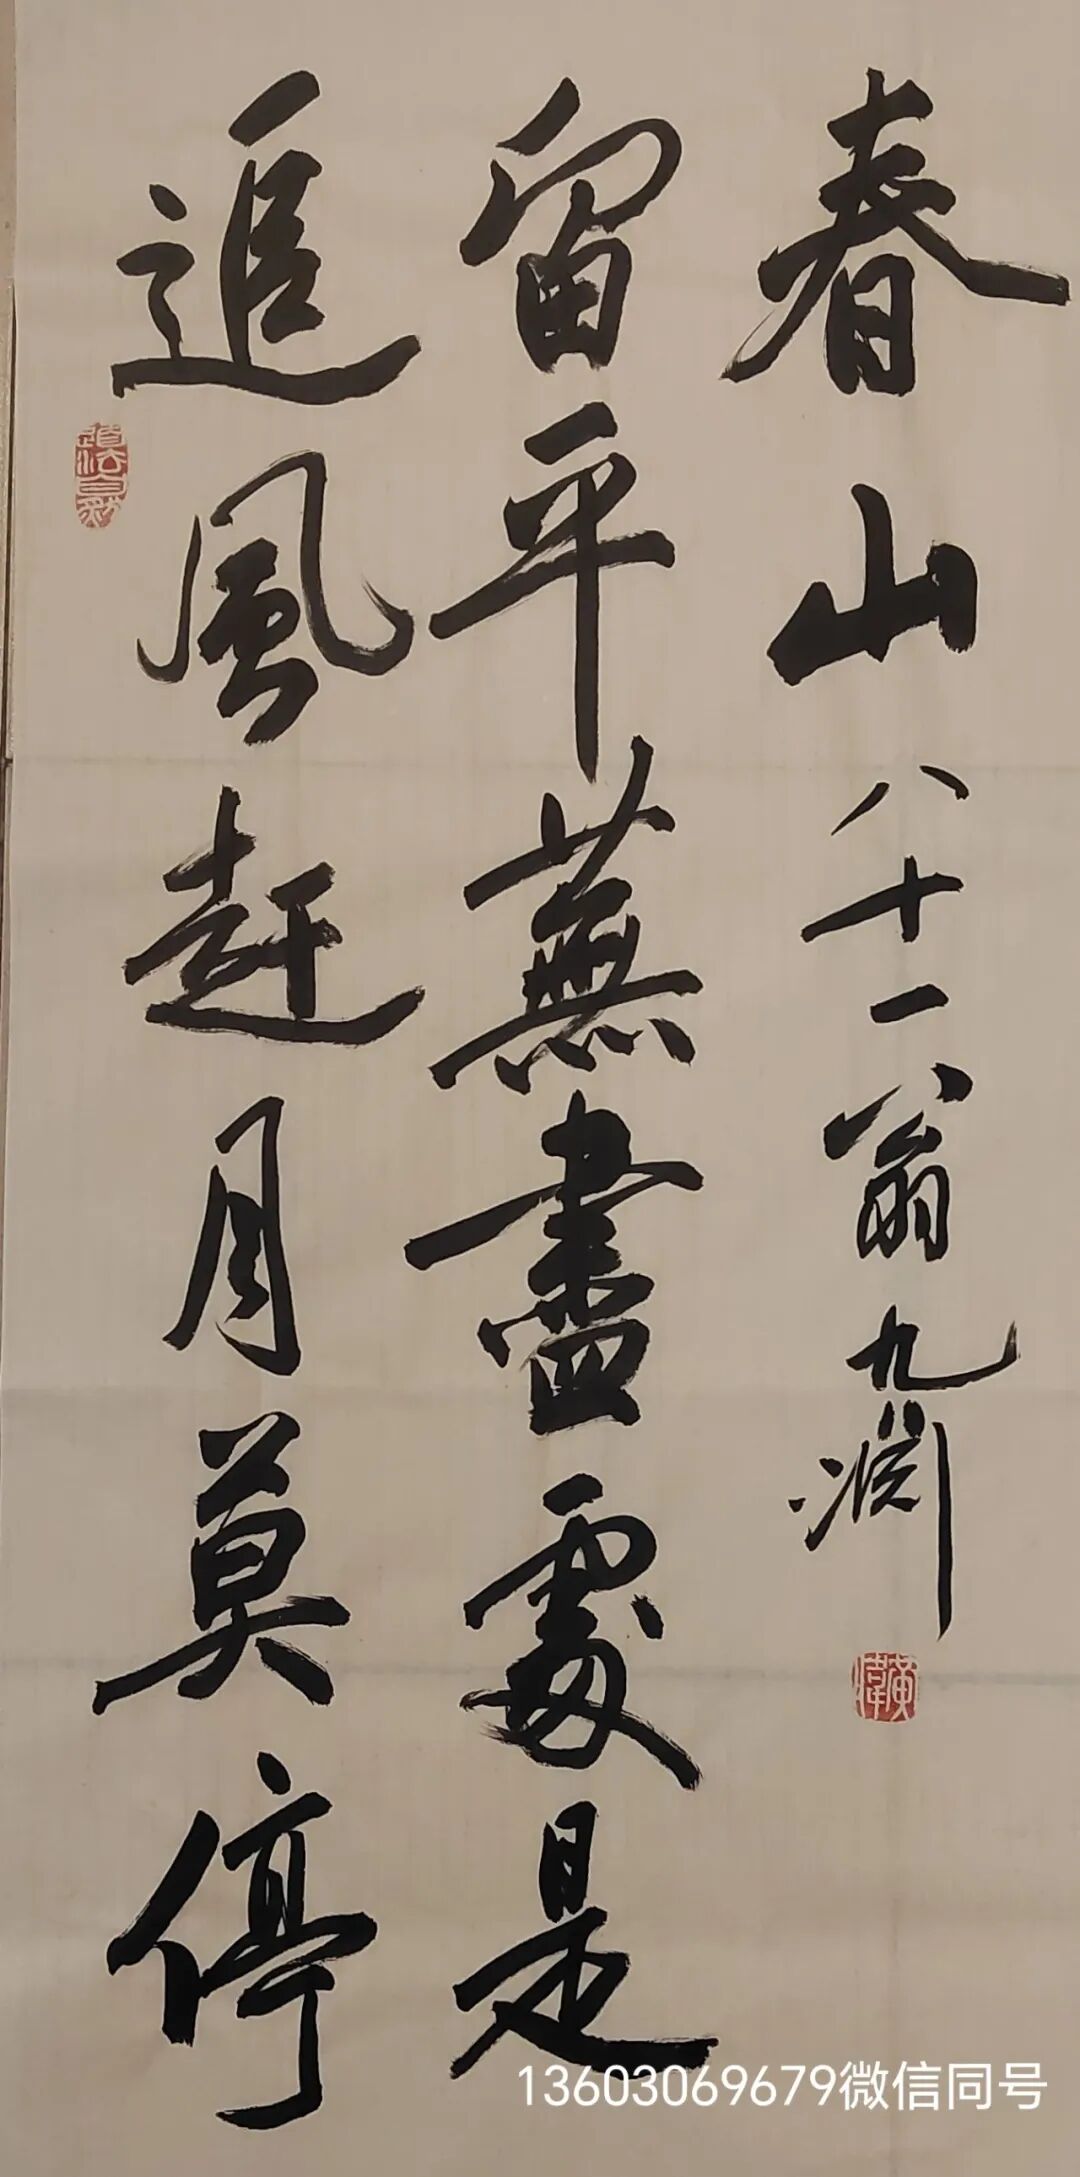 追風赶月莫停
道法自然
留平蕪盡處是
春山八十一翁九渊
13603069679微信同号